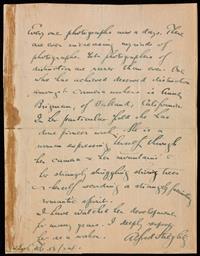 Every one photographs now a days. There
are ever increasing myriads of
photographs. Yet photographers of
distinction are rarer than ever. One
who has achieved deserved distinction
amongst camera workers is Annie
Brigman, of Oakland, California.
In her particular field she has
done pioneer work. She is a
woman expressing herself through
her camera & her mountains &
her strangely struggling shrieking trees
& herself revealing a strangely
romantic spirit.
I have watched her development
for many years. I deeply respect
her as a worker.
Alfred Stieglitz